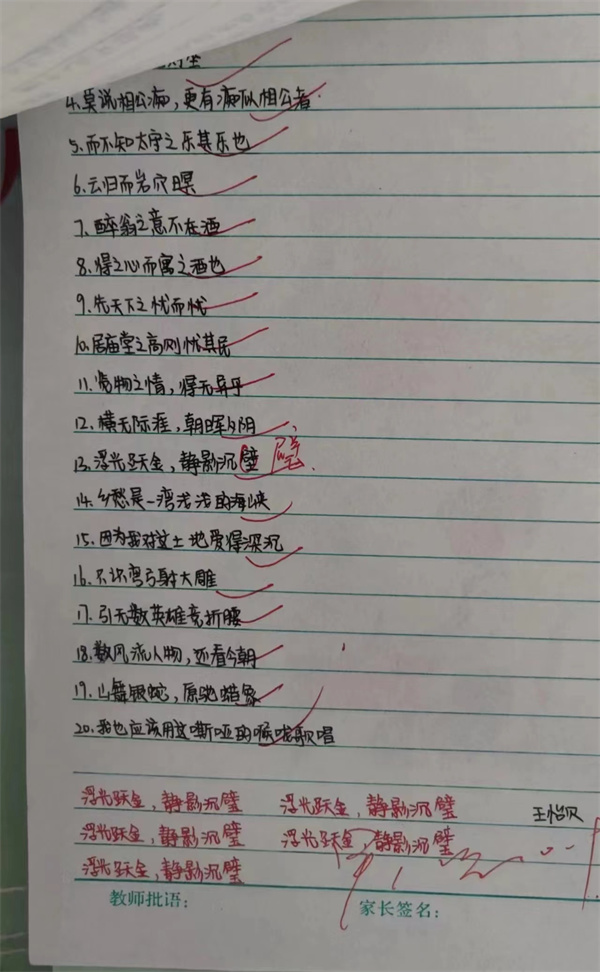 4.莫说相公痴,更有痴似相公者.
5.而不知太守之乐其乐也
6.云归而岩穴暝
7.醉翁之意不在酒
8.得之心而寓之酒也
9.先天下之忧而忧
10.居庙堂之高则忧其民
11.览物之情,得无异乎
12.横无际涯,朝晖夕阴
13.浮光跃金,静影沉璧
14.乡愁是一湾浅浅的海峡
15.因为我对这土地爱得深沉
16.只识弯弓射大雕
17.引无数英雄竞折腰
18.数风流人物,还看今朝
19.山舞银蛇,原驰蜡象
20.我也应该用这嘶哑的喉咙歌唱
浮光跃金,静影沉璧 浮光跃金,静影沉璧
王怡贝
浮光跃金,静影沉璧 浮光跃金,静影沉璧
浮光跃金,静影沉璧
教师批语: 家长签名: